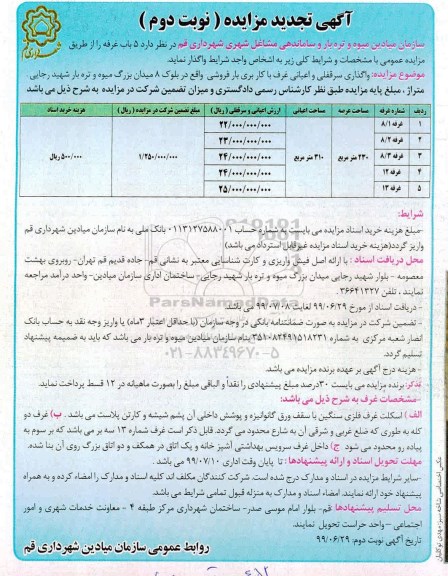 آگهی تجدید مزایده ( نوبت دوم )
سازمان میادین میوه و تره بار و ساماندهی مشاغل شهری شهرداری قم در نظر دارد ۵ باب غرفه را از طریق
مزایده عمومی با مشخصات و شرایط کلی زیر به اشخاص واجد شرایط واگذار نماید.
موضوع مزایده: واگذاری سرقفلی و اعیانی غرفه با کاربری بار فروشی واقع در بلوک ۸ میدان بزرگ میوه و تره بار شهید رجایی
متراژ ، مبلغ پایه مزایده طبق نظر کارشناس رسمی دادگستری و میزان تضمین شرکت در مزایده به شرح ذیل می باشد
ردیف شماره غرفه مساحت عرصه مساحت اعیانی ارزش اعیانی و سرقفلی ( ریال ) مبلغ تضمین شرکت در مزایده ( ریال ) هزینه خرید اسناد
۱ غرفه ۸/۱ ۲۳۰ متر مربع ۳۱۰ متر مربع ۲۲/۰۰۰/۰۰۰/۰۰۰ ۱/۲۵۰/۰۰۰/۰۰۰ ۵۰۰/۰۰۰ ریال
۲ غرفه ۸/۲ ۲۳/۰۰۰/۰۰۰/۰۰۰
۳ غرفه ۸/۳ ۲۴/۰۰۰/۰۰۰/۰۰۰
۴ غرفه ۱۲ ۲۴/۰۰۰/۰۰۰/۰۰۰
۵ غرفه ۱۳ ۲۵/۰۰۰/۰۰۰/۰۰۰
شرایط:
-مبلغ هزینه خرید اسناد مزایده می بایست به شماره حساب ۰۱۱۳۱۲۷۵۸۸۰۰۱ بانک ملی به نام سازمان میادین شهرداری قم
واریز گردد(هزینه خرید اسناد مزایده غیرقابل استرداد می باشد)
محل دریافت اسناد : با ارائه اصل فیش واریزی و کارت شناسایی معتبر به نشانی قم- جاده قدیم قم تهران- روبروی بهشت
معصومه - بلوار شهید رجایی میدان بزرگ میوه و تره بار شهید رجایی- ساختمان اداری سازمان میادین- واحد درآمد مراجعه
نمایند ، تلفن ۳۶۶۴۱۳۲۷.
- دریافت اسناد از مورخ ۹۹/۰۶/۲۹ لغایت ۹۹/۰۷/۰۸ می باشد.
- تضمین شرکت در مزایده به صورت ضمانتنامه بانکی در وجه سازمان (با حداقل اعتبار ۳ماه) یا واریز وجه نقد به حساب بانک
انصار شعبه مرکزی به شماره بنام سازمان میادین میوه و تره بار می باشد که باید به ضمیمه پیشنهاد
تسلیم گردد.
- هزینه درج آگهی بر عهده برنده مزایده می باشد.
تذکر: برنده مزایده می بایست ۳۰درصد مبلغ پیشنهادی را نقداً و الباقی مبلغ را بصورت ماهیانه در ۱۲ قسط پرداخت نماید.
-مشخصات غرف به شرح ذیل می باشد:
الف ) اسکلت غرف فلزی سنگین با سقف ورق گالوانیزه و پوشش داخلی آن پشم شیشه و کارتن پلاست می باشد. ب) غرف دو
کله به طوری که ضلع غربی و شرقی آن به شارع محدود می گردد. قابل ذکر است غرف شماره ۱۳ سه بر می باشد که بر سوم به
پیاده رو محدود می شود ج) داخل غرف سرویس بهداشتی آشپز خانه و یک اتاق در همکف و دو اتاق بزرگ روی آن بنا شده.
مهلت تحویل اسناد و ارائه پیشنهادها : تا پایان وقت اداری ۹۹/۰۷/۱۰ می باشد.
-سایر شرایط مزایده در اسناد و مدارک درج شده است. شرکت کنندگان مکلف اند کلیه اسناد و مدارک را امضاء کرده و به همراه
پیشنهاد خود ارائه نمایند. امضاء اسناد و مدارک به منزله قبول تمامی شرایط می باشد.
محل تسلیم پیشنهادها قم- بلوار امام موسی صدر- ساختمان شهرداری مرکز طبقه ۴ - معاونت خدمات شهری و امور
اجتماعی – واحد حراست تحویل نمایند.
تاریخ آگهی نوبت دوم: ۹۹/۰۶/۲۹
روابط عمومی سازمان میادین شهرداری قم
ParsNamadData
۰۲۱-۸۸۳۴۹۶۷۰-۵